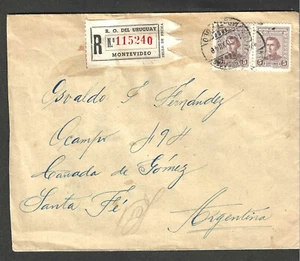 R. O. DEL URUGUAY
R Nº 115240
MONTEVIDEO
Osvaldo F. Fernández
Ocampo 494
Cañada de Gómez
Santa Fé
Argentina